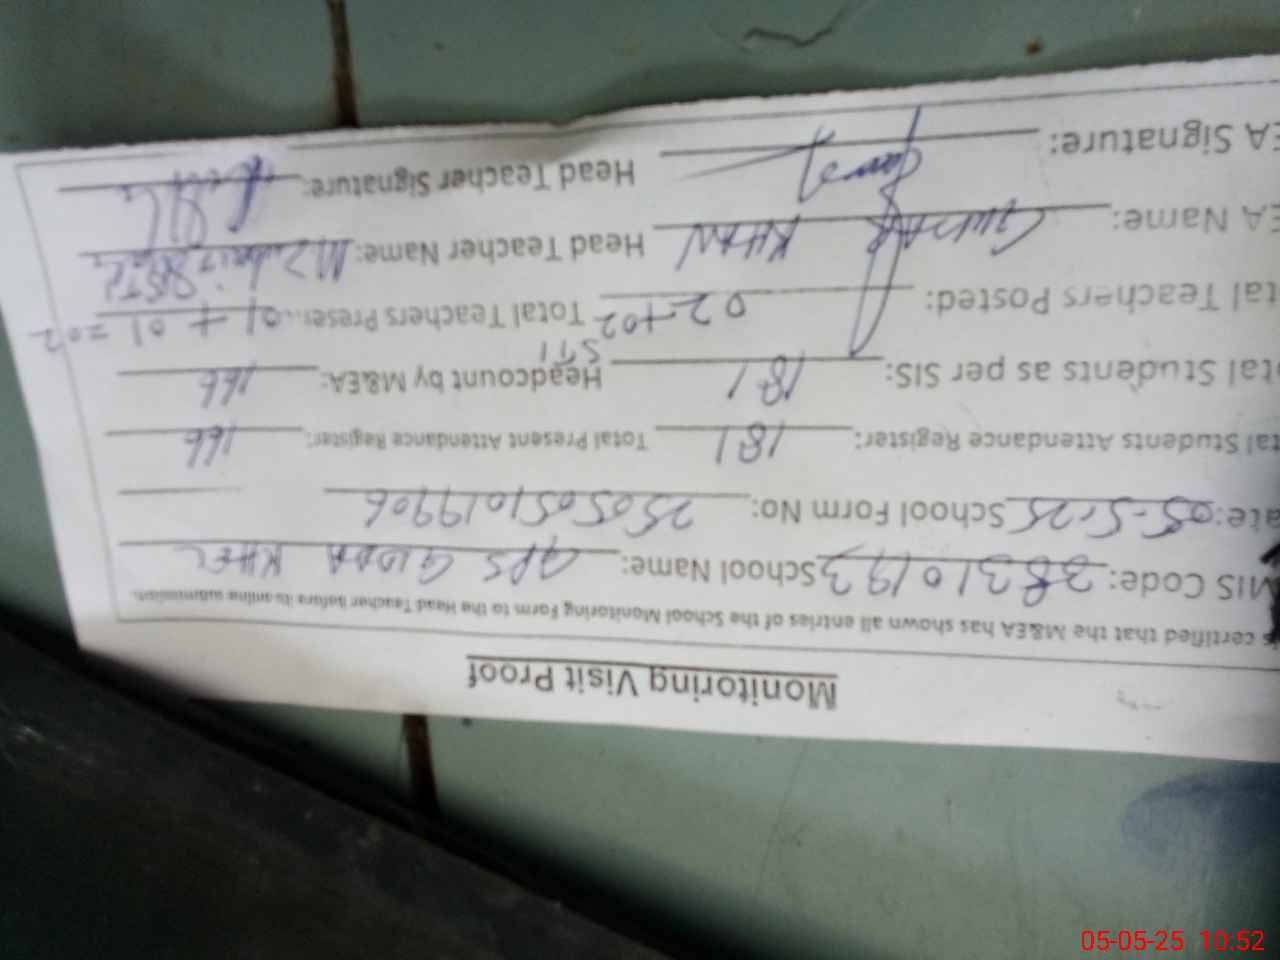 Monitoring Visit Proof
is certified that the M&EA has shown all entries of the School Monitoring Form to the Head Teacher before its online submission.
MIS Code: 38310193 School Name: GPS GIDDA KHEL
ate: 05-5-25 School Form No: 25050510 19906
tal Students Attendance Register: 181 Total Present Attendance Register: 166
tal Students as per SIS: 181 Headcount by M&EA: 166
tal Teachers Posted: 02+02 STI Total Teachers Presen... 01+01=02
EA Name: KHAN Head Teacher Name: M Zubair
EA Signature: Head Teacher Signature:
05-05-25 10:52